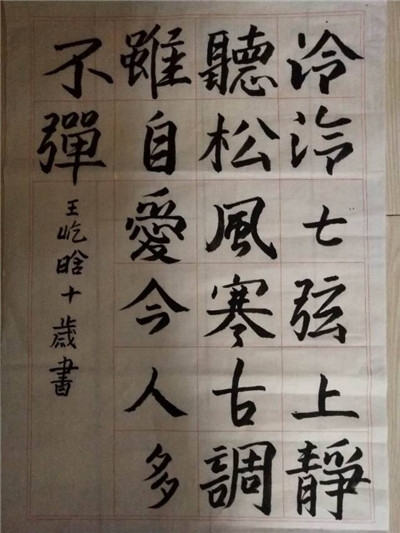 泠泠七弦上靜
聽松風寒古調
雖自愛今人多
不彈
王屹晗十歲書